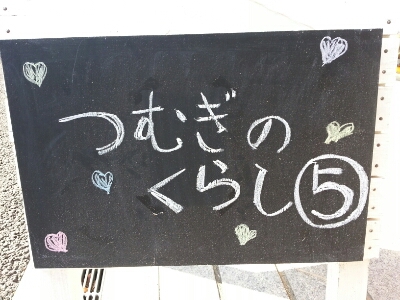 つむぎの
くらし⑤